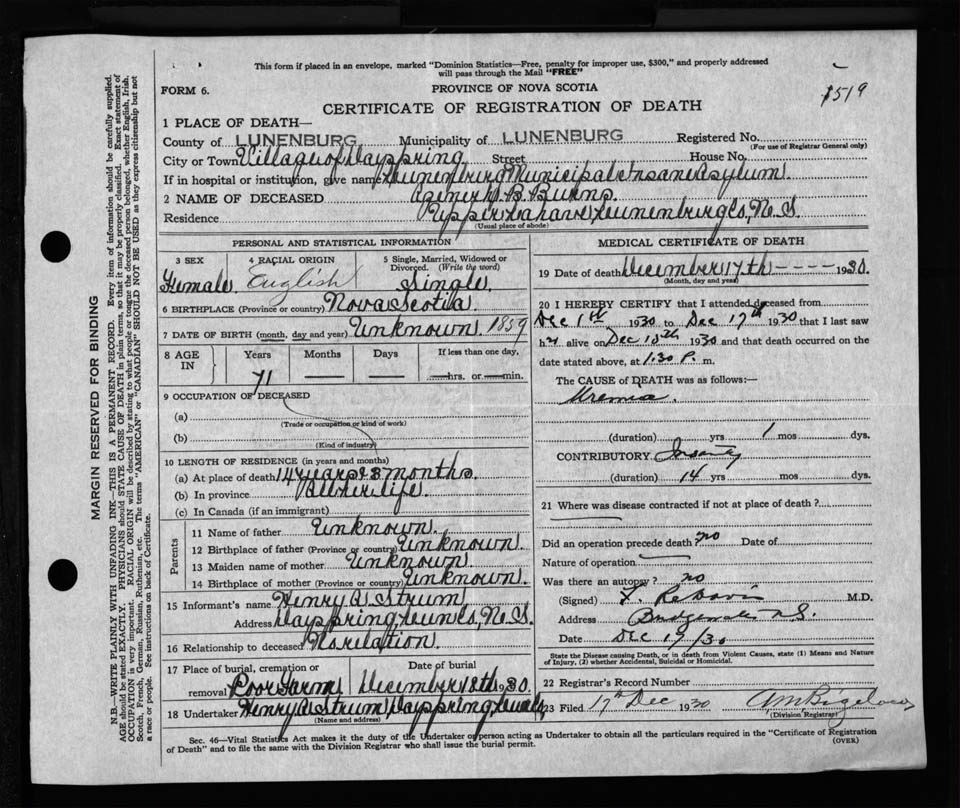 This form if placed in an envelope, marked "Dominion Statistics—Free, penalty for improper use, $300," and properly addressed
will pass through the Mail "FREE"
FORM 6.
PROVINCE OF NOVA SCOTIA
1519
CERTIFICATE OF REGISTRATION OF DEATH
1 PLACE OF DEATH—
County of LUNENBURG Municipality of LUNENBURG Registered No.
(For use of Registrar General only)
City or Town Village of Dayspring Street House No.
If in hospital or institution, give name Lunenburg Municipal Insane Asylum.
2 NAME OF DECEASED B. Burns.
Residence Upper Lahave, Lunenburg Co, N.S.
(Usual place of abode)
PERSONAL AND STATISTICAL INFORMATION
3 SEX 4 RACIAL ORIGIN 5 Single, Married, Widowed or
Divorced. (Write the word)
Female. English Single.
6 BIRTHPLACE (Province or country) Nova Scotia
7 DATE OF BIRTH (month, day and year) Unknown 1859
8 AGE IN Years Months Days If less than one day,
71 — — hrs. or — min.
9 OCCUPATION OF DECEASED
(a)
(Trade or occupation or kind of work)
(b)
(Kind of industry)
10 LENGTH OF RESIDENCE (in years and months)
(a) At place of death 14 years 3 months
(b) In province All her life.
(c) In Canada (if an immigrant)
Parents
11 Name of father Unknown.
12 Birthplace of father (Province or country) Unknown.
13 Maiden name of mother Unknown.
14 Birthplace of mother (Province or country) Unknown.
15 Informant's name Henry A. Strum
Address Dayspring, Lun. Co, N.S.
16 Relationship to deceased No relation.
17 Place of burial, cremation or Date of burial
removal Poor Farm December 18th 1930.
18 Undertaker Henry A. Strum, Dayspring,
(Name and address)
MEDICAL CERTIFICATE OF DEATH
19 Date of death December 17th - - - - 1930.
(Month, day and year)
20 I HEREBY CERTIFY that I attended deceased from
Dec 1st 1930 to Dec 17th 1930 that I last saw
her alive on Dec 1930 and that death occurred on the
date stated above, at 1.30 P. m.
The CAUSE of DEATH was as follows:—
Uremia.
(duration) yrs 1 mos dys.
CONTRIBUTORY Insanity
(duration) 14 yrs mos dys.
21 Where was disease contracted if not at place of death?
Did an operation precede death? no Date of
Nature of operation
Was there an autopsy? no
(Signed) Davis M.D.
Address N.S.
Date Dec 19/30
State the Disease causing Death, or in death from Violent Causes, state (1) Means and Nature
of Injury, (2) whether Accidental, Suicidal or Homicidal.
22 Registrar's Record Number
23 Filed 17th Dec 1930 A M Bigelow
(Division Registrar)
Sec. 46—Vital Statistics Act makes it the duty of the Undertaker or person acting as Undertaker to obtain all the particulars required in the "Certificate of Registration
of Death" and to file the same with the Division Registrar who shall issue the burial permit. (OVER)
MARGIN RESERVED FOR BINDING
N.B.—WRITE PLAINLY WITH UNFADING INK—THIS IS A PERMANENT RECORD. Every item of information should be carefully supplied.
AGE should be stated EXACTLY. PHYSICIANS should STATE CAUSE OF DEATH in plain terms, so that it may be properly classified. Exact statement of
OCCUPATION is very important. RACIAL ORIGIN will be described by stating to what people or tongue the deceased person belonged, whether English, Irish,
Scotch, French, German, Russian, Ruthenian, etc. The terms "AMERICAN" or "CANADIAN" SHOULD NOT BE USED as they express citizenship but not
a race or people. See instructions on back of Certificate.